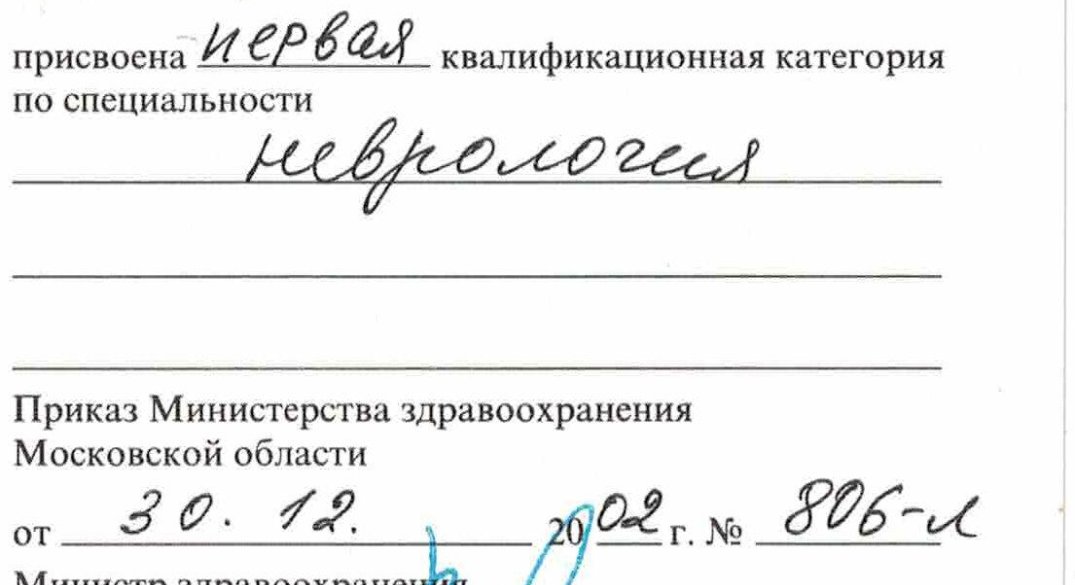 присвоена первая квалификационная категория
по специальности
неврология
Приказ Министерства здравоохранения
Московской области
от 30. 12. 2002 г. № 806-л
Министр здравоохранения